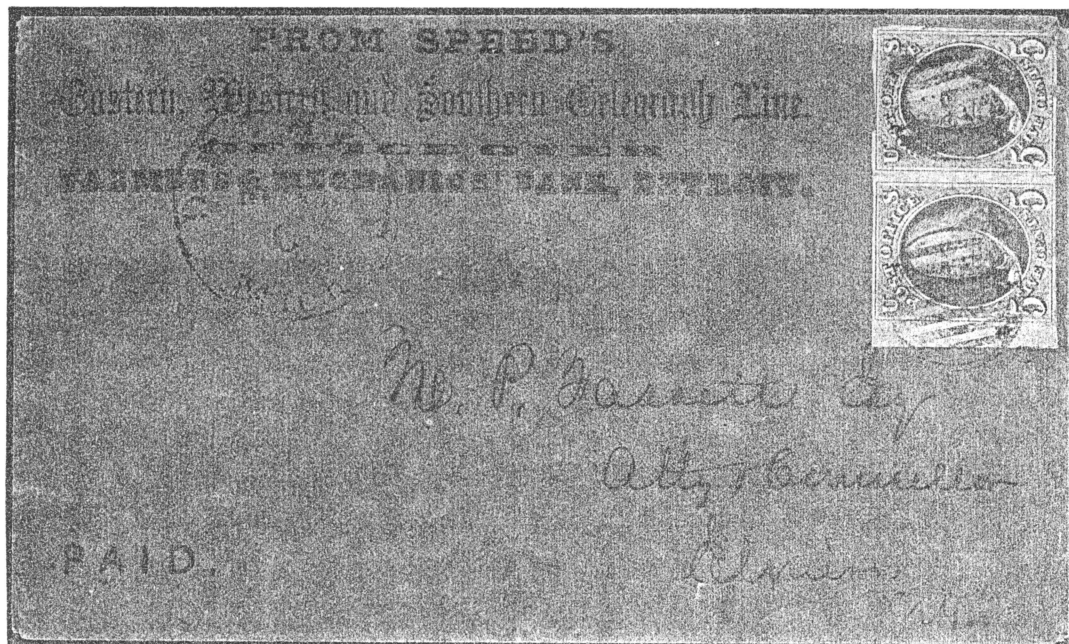 FROM SPEED'S
Eastern, Western and Southern Telegraph Line.
OFFICE OVER
FARMERS & MECHANICS' BANK, DETROIT.
U POST OFFICE S
FIVE CENTS
5 5
U POST OFFICE S
FIVE CENTS
5 5
P. Fassett Esq
Atty & Counsellor
PAID.